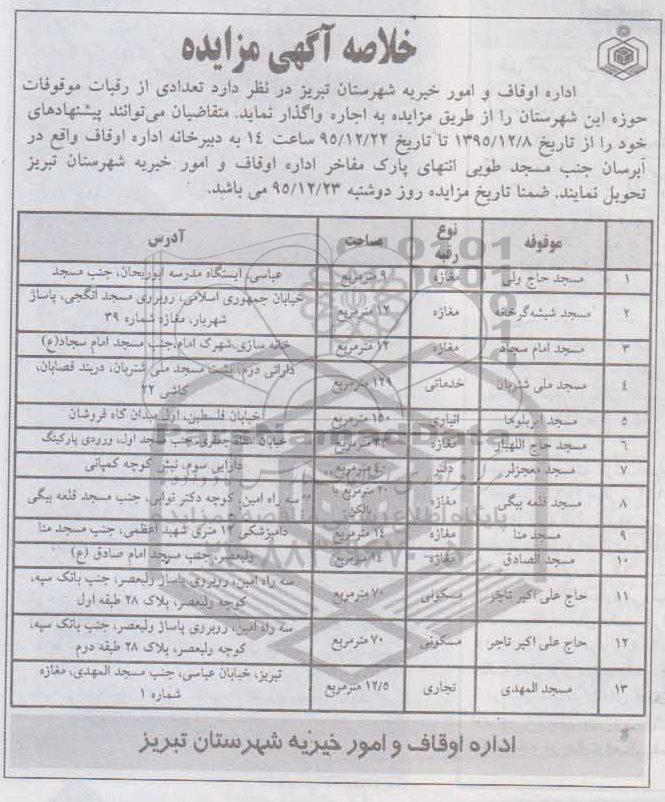 خلاصه آگهی مزایده
اداره اوقاف و امور خیریه شهرستان تبریز در نظر دارد تعدادی از رقبات موقوفات
حوزه این شهرستان را از طریق مزایده به اجاره واگذار نماید. متقاضیان می‌توانند پیشنهادهای
خود را از تاریخ ۱۳۹۵/۱۲/۸ تا تاریخ ۹۵/۱۲/۲۲ ساعت ۱۴ به دبیرخانه اداره اوقاف واقع در
آبرسان جنب مسجد طوبی انتهای پارک مفاخر اداره اوقاف و امور خیریه شهرستان تبریز
تحویل نمایند. ضمنا تاریخ مزایده روز دوشنبه ۹۵/۱۲/۲۳ می باشد.
موقوفه نوع رقبه مساحت آدرس
۱ مسجد حاج ولی مغازه ۹ مترمربع عباسی، ایستگاه مدرسه ابوریحان، جنب مسجد
۲ مسجد شیشه‌گرخانه مغازه ۱۲ مترمربع خیابان جمهوری اسلامی، روبروی مسجد انگجی، پاساژ
شهریار، مغازه شماره ۳۹
۳ مسجد امام سجاد مغازه ۱۲ مترمربع خانه سازی،شهرک امام،جنب مسجد امام سجاد(ع)
۴ مسجد ملی شتربان خدماتی ۱۲۹ مترمربع دارائی دوم، پشت مسجد ملی شتربان، دربند قصابان،
کاشی ۲۲
۵ مسجد انباری ۱۵۰ مترمربع خیابان فلسطین، اول میدان کاه فروشان
۶ مسجد حاج اللهیار مغازه مترمربع خیابان جعفری، جنب مسجد اول، ورودی پارکینگ
۷ مسجد معجزلر دفتر ۴۰ مترمربع دارایی سوم، نبش کوچه کمپانی
۸ مسجد قلعه بیگی مغازه ۲۰ مترمربع با
بالکن سه راه امین، کوچه دکتر نوابی، جنب مسجد قلعه بیگی
۹ مسجد منا مغازه ۱۴ مترمربع دامپزشکی ۱۲ متری شهید اعظمی، جنب مسجد منا
۱۰ مسجد الصادق مغازه ۱۴ مترمربع ولیعصر، جنب مسجد امام صادق (ع)
۱۱ حاج علی اکبر تاجر مسکونی ۷۰ مترمربع سه راه امین، روبروی پاساژ ولیعصر، جنب بانک سپه،
کوچه ولیعصر، پلاک ۲۸ طبقه اول
۱۲ حاج علی اکبر تاجر مسکونی ۷۰ مترمربع سه راه امین، روبروی پاساژ ولیعصر، جنب بانک سپه،
کوچه ولیعصر، پلاک ۲۸ طبقه دوم
۱۳ مسجد المهدی تجاری ۱۲/۵ مترمربع تبریز، خیابان عباسی، جنب مسجد المهدی، مغازه
شماره ۱
اداره اوقاف و امور خیریه شهرستان تبریز